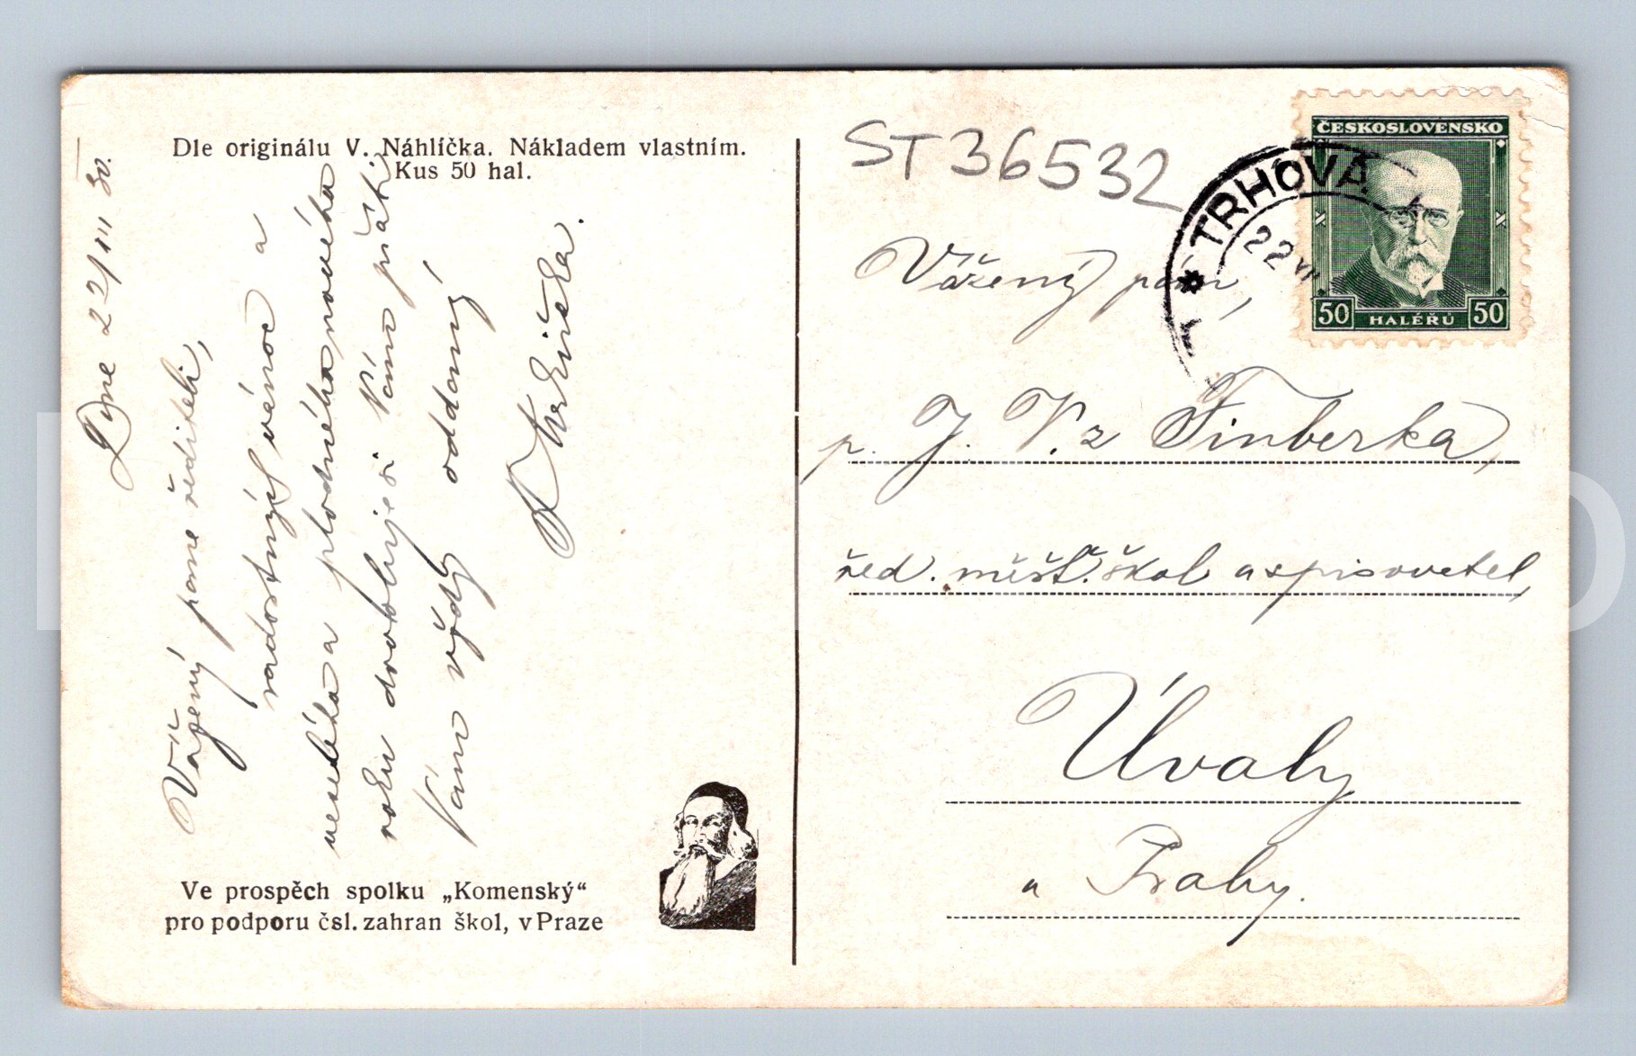 Dle originálu V. Náhlíčka. Nákladem vlastním.
Kus 50 hal.
Dne 22/III 30.
Vážený pane řediteli,
radostných vánoc a
veselého a plodného nového
roku drobluje si Vám přáti
Vám vždy oddaný
Ve prospěch spolku „Komenský“
pro podporu čsl. zahran škol, v Praze
ST36532
ČESKOSLOVENSKO
50 HALÉŘŮ 50
TRHOVÁ
22 VII
Vážený pán,
p. J. V. z Finberka,
řed. měšť. škol a spisovatel,
Úvaly
u Prahy.